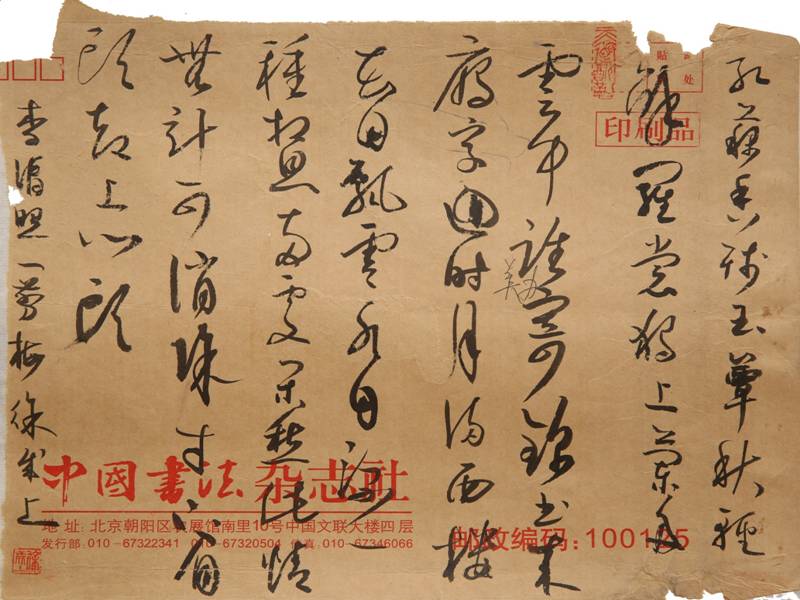 红藕香残玉簟秋轻
解羅裳獨上蘭舟
雲中誰寄錦書來
雁字迴时月满西楼
花自飄零水自流一
種相思兩處闲愁此情
無计可消除才下眉
頭却上心頭
李清照一剪梅 徐
贴
处
印刷品
中國書法杂志社
地 址: 北京朝阳区农展馆南里10号中国文联大楼四层
发行部:010-67322341 010-67320504 传真:010-67346066
邮政编码:100125